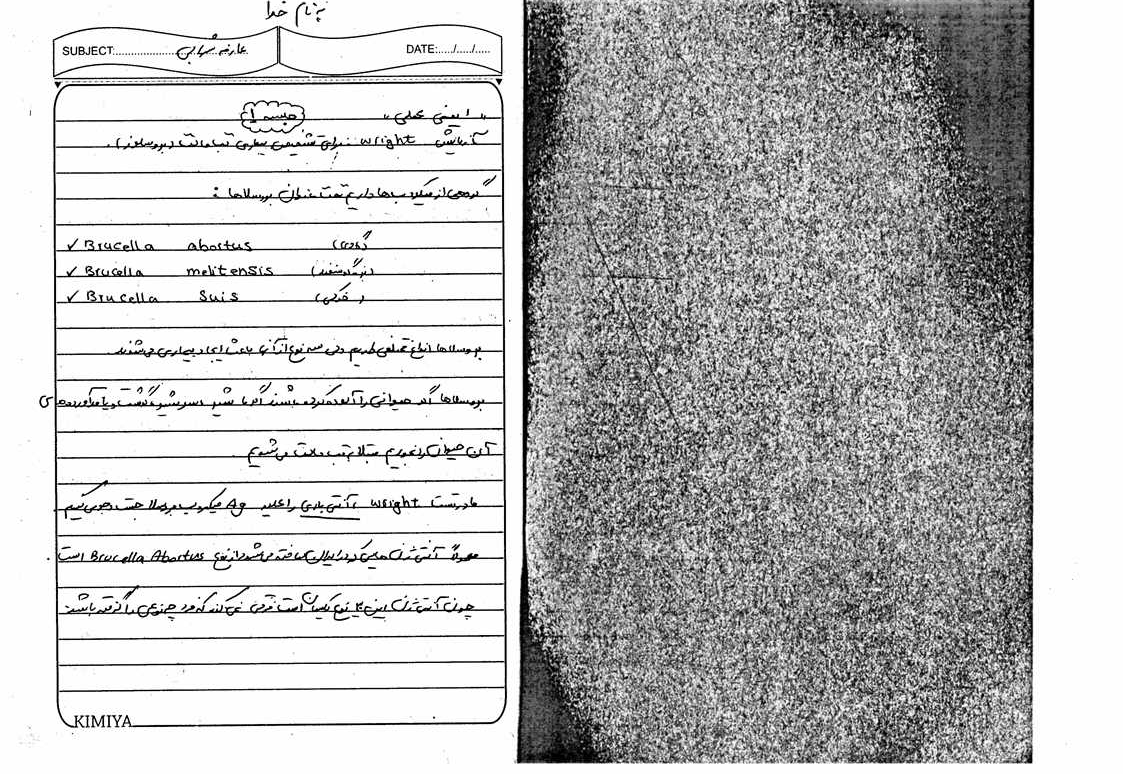 به نام خدا
SUBJECT: عارفه شهابی
DATE:...../...../.....
" ایمنی عملی " جلسه 1
آزمایش wright : برای تشخیص بیماری تب مالت (بروسلوز).
گروهی از میکروب ها داریم تحت عنوان بروسلاها :
✓ Brucella abortus (گاوی)
✓ Brucella melitensis (بز گوسفند)
✓ Brucella Suis (خوکی)
بروسلاها انواع مختلفی داریم ولی سه نوع از آنها باعث ایجاد بیماری می شوند.
بروسلاها اگر حیوانی را آلوده کرده باشند اگر ما شیر سرشیر گوشت و یا فرآورده های
آن حیوان را بخوریم مبتلا به تب مالت می شویم.
ما در تست wright ، آنتی بادی را علیه Ag میکروب بروسلا جست و جو می کنیم
معمولاً آنتی ژن هایی که در ایران ساخته می شود از نوع Brucella Abortus است.
چون آنتی ژن این ۳ نوع یکسان است فرقی نمی کند که فرد چه نوعی را گرفته باشد.
KIMIYA